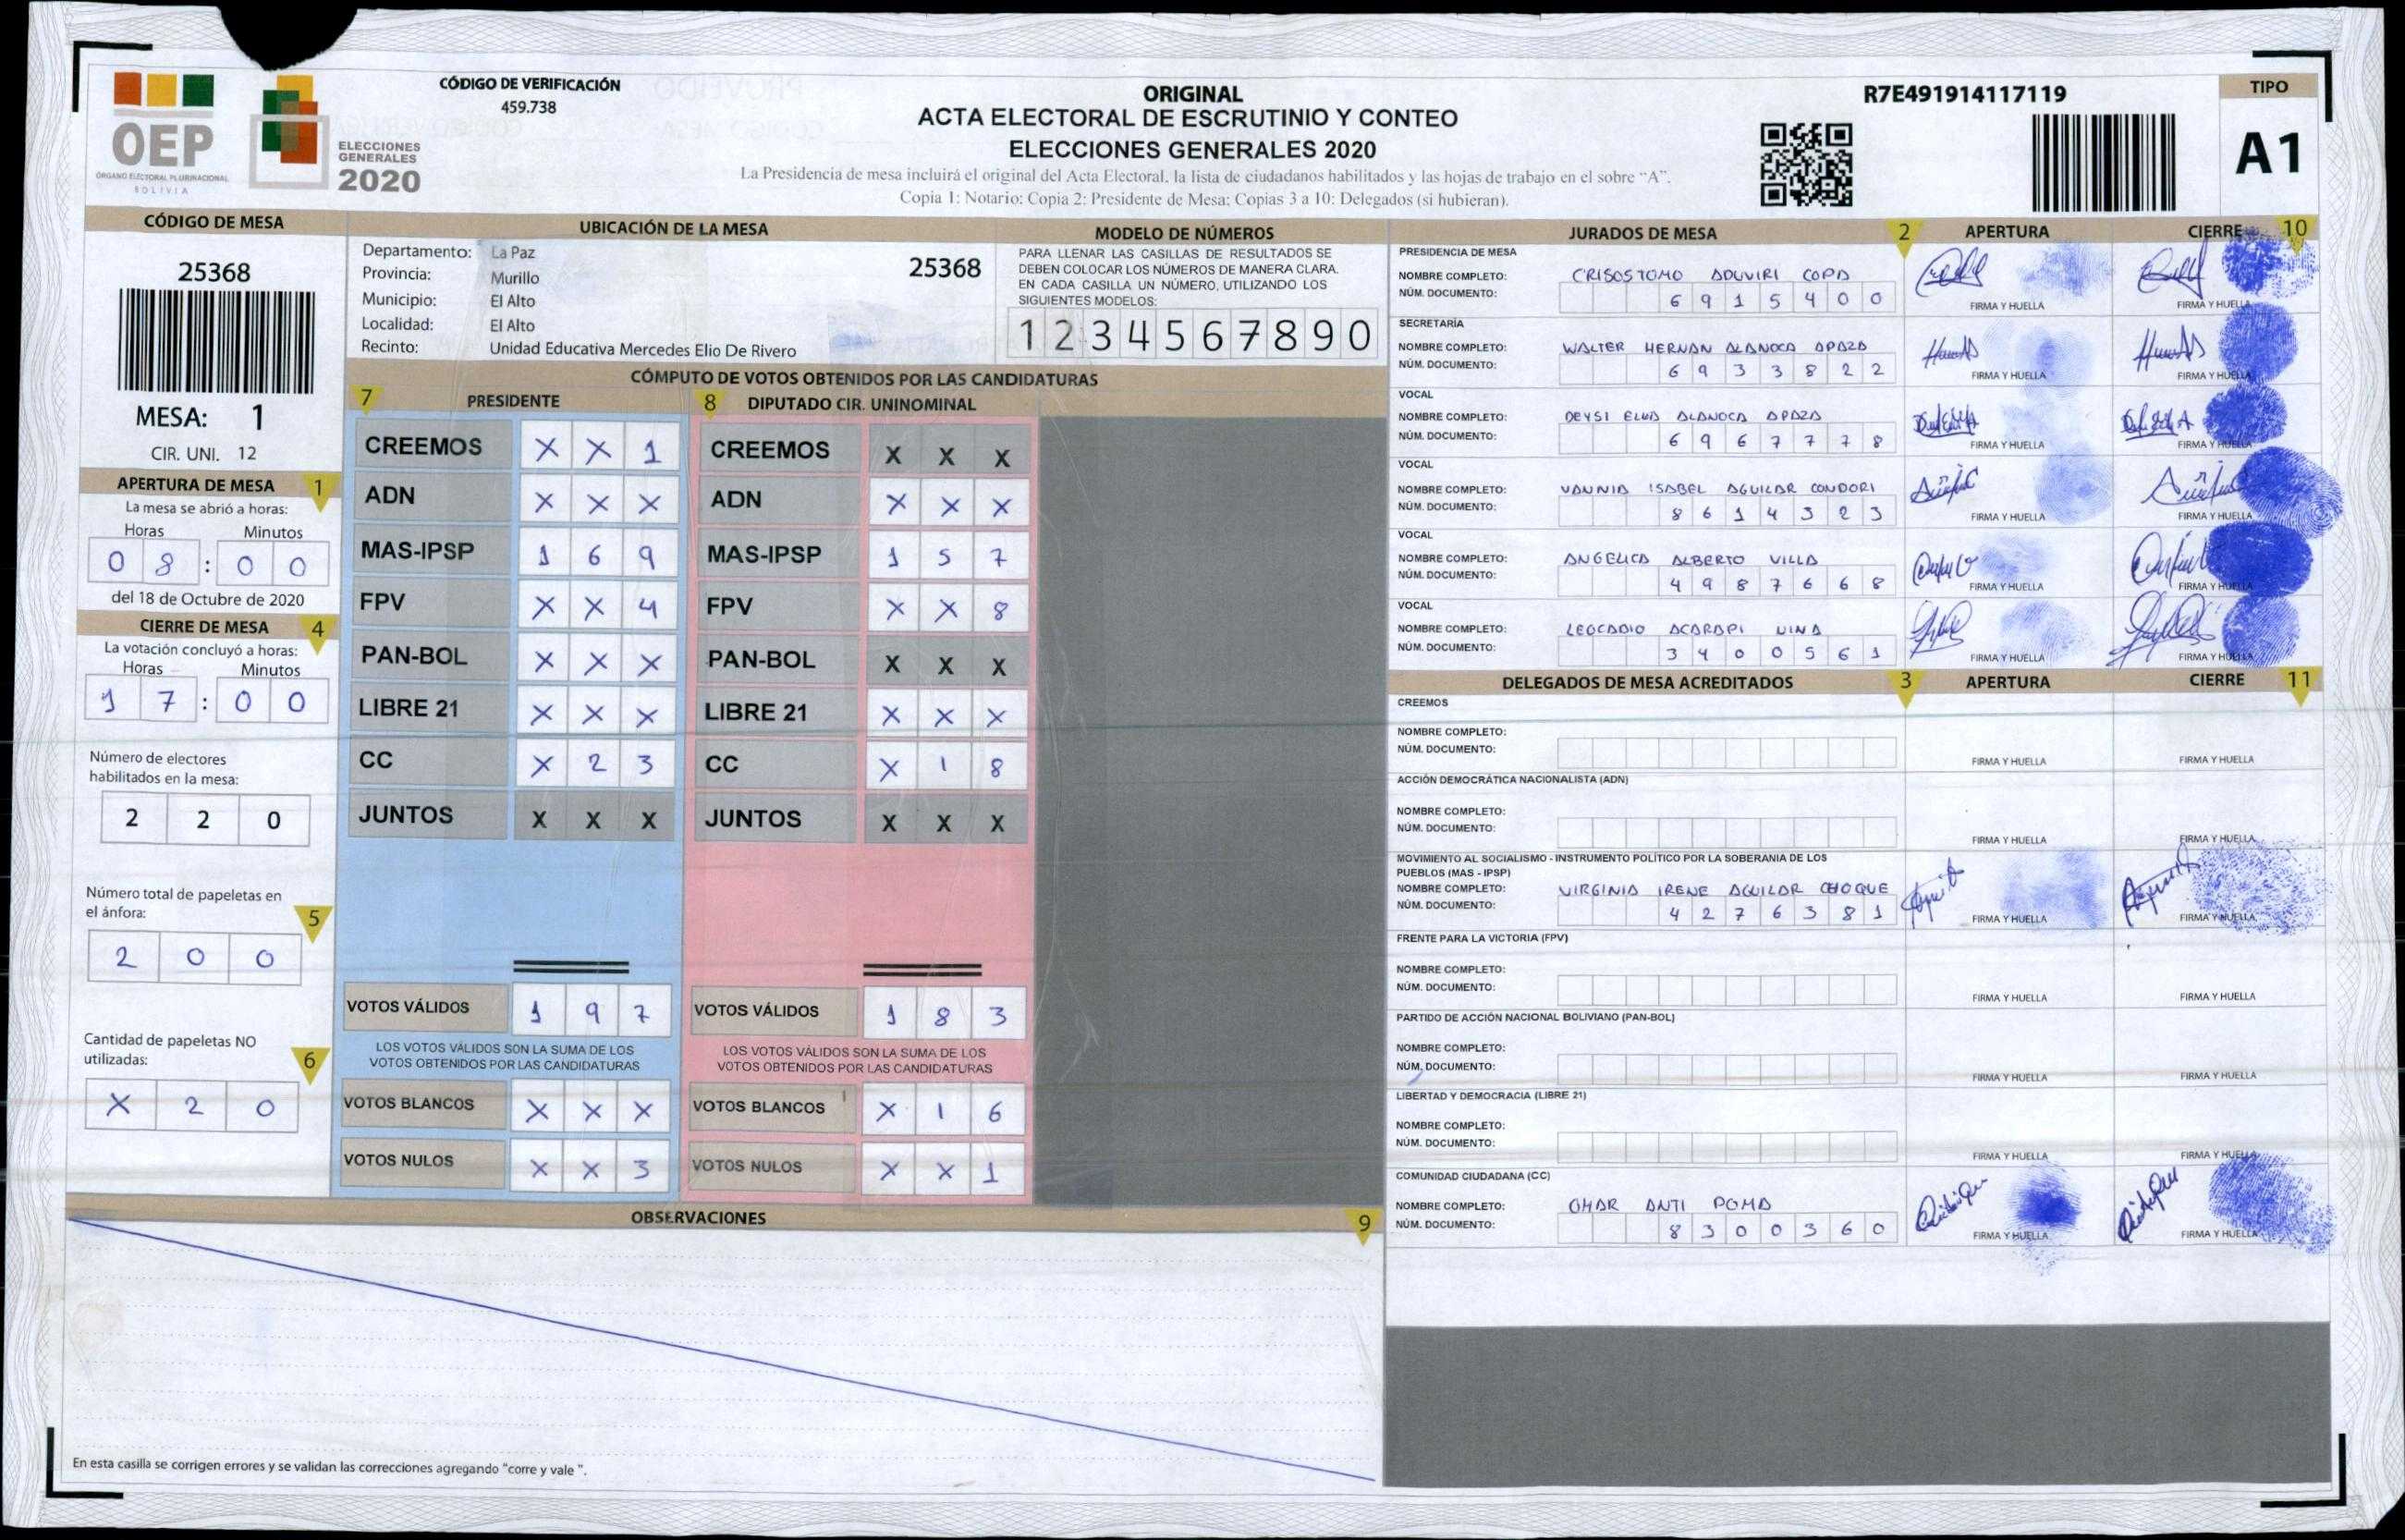 CÓDIGO DE VERIFICACIÓN
459.738
OEP
ÓRGANO ELECTORAL PLURINACIONAL
BOLIVIA
ELECCIONES
GENERALES
2020
ORIGINAL
ACTA ELECTORAL DE ESCRUTINIO Y CONTEO
ELECCIONES GENERALES 2020
La Presidencia de mesa incluirá el original del Acta Electoral, la lista de ciudadanos habilitados y las hojas de trabajo en el sobre "A".
Copia 1: Notario; Copia 2: Presidente de Mesa; Copias 3 a 10: Delegados (si hubieran).
R7E491914117119
TIPO
A1
CÓDIGO DE MESA
25368
MESA: 1
CIR. UNI. 12
APERTURA DE MESA 1
La mesa se abrió a horas:
Horas Minutos
0 8 : 0 0
del 18 de Octubre de 2020
CIERRE DE MESA 4
La votación concluyó a horas:
Horas Minutos
1 7 : 0 0
Número de electores
habilitados en la mesa:
2 2 0
Número total de papeletas en
el ánfora: 5
2 0 0
Cantidad de papeletas NO
utilizadas: 6
X 2 0
UBICACIÓN DE LA MESA
Departamento: La Paz
Provincia: Murillo
Municipio: El Alto
Localidad: El Alto
Recinto: Unidad Educativa Mercedes Elio De Rivero
25368
MODELO DE NÚMEROS
PARA LLENAR LAS CASILLAS DE RESULTADOS SE
DEBEN COLOCAR LOS NÚMEROS DE MANERA CLARA.
EN CADA CASILLA UN NÚMERO, UTILIZANDO LOS
SIGUIENTES MODELOS:
1 2 3 4 5 6 7 8 9 0
CÓMPUTO DE VOTOS OBTENIDOS POR LAS CANDIDATURAS
7 PRESIDENTE
CREEMOS X X 1
ADN X X X
MAS-IPSP 1 6 9
FPV X X 4
PAN-BOL X X X
LIBRE 21 X X X
CC X 2 3
JUNTOS X X X
VOTOS VÁLIDOS 1 9 7
LOS VOTOS VÁLIDOS SON LA SUMA DE LOS
VOTOS OBTENIDOS POR LAS CANDIDATURAS
VOTOS BLANCOS X X X
VOTOS NULOS X X 3
8 DIPUTADO CIR. UNINOMINAL
CREEMOS X X X
ADN X X X
MAS-IPSP 1 5 7
FPV X X 8
PAN-BOL X X X
LIBRE 21 X X X
CC X 1 8
JUNTOS X X X
VOTOS VÁLIDOS 1 8 3
LOS VOTOS VÁLIDOS SON LA SUMA DE LOS
VOTOS OBTENIDOS POR LAS CANDIDATURAS
VOTOS BLANCOS X 1 6
VOTOS NULOS X X 1
OBSERVACIONES 9
En esta casilla se corrigen errores y se validan las correcciones agregando "corre y vale ".
JURADOS DE MESA 2 APERTURA CIERRE 10
PRESIDENCIA DE MESA
NOMBRE COMPLETO: CRISOSTOMO ADUVIRI COPA
NÚM. DOCUMENTO: 6 9 1 5 4 0 0
FIRMA Y HUELLA FIRMA Y HUELLA
SECRETARÍA
NOMBRE COMPLETO: WALTER HERNAN ALANOCA APAZA
NÚM. DOCUMENTO: 6 9 3 3 8 2 2
FIRMA Y HUELLA FIRMA Y HUELLA
VOCAL
NOMBRE COMPLETO: DEYSI ELVA ALANOCA APAZA
NÚM. DOCUMENTO: 6 9 6 7 7 7 8
FIRMA Y HUELLA FIRMA Y HUELLA
VOCAL
NOMBRE COMPLETO: VANNIA ISABEL AGUILAR CONDORI
NÚM. DOCUMENTO: 8 6 1 4 3 2 3
FIRMA Y HUELLA FIRMA Y HUELLA
VOCAL
NOMBRE COMPLETO: ANGELICA ALBERTO VILLA
NÚM. DOCUMENTO: 4 9 8 7 6 6 8
FIRMA Y HUELLA FIRMA Y HUELLA
VOCAL
NOMBRE COMPLETO: LEOCADIO ACARAPI NINA
NÚM. DOCUMENTO: 3 4 0 0 5 6 1
FIRMA Y HUELLA FIRMA Y HUELLA
DELEGADOS DE MESA ACREDITADOS 3 APERTURA CIERRE 11
CREEMOS
NOMBRE COMPLETO:
NÚM. DOCUMENTO:
FIRMA Y HUELLA FIRMA Y HUELLA
ACCIÓN DEMOCRÁTICA NACIONALISTA (ADN)
NOMBRE COMPLETO:
NÚM. DOCUMENTO:
FIRMA Y HUELLA FIRMA Y HUELLA
MOVIMIENTO AL SOCIALISMO - INSTRUMENTO POLÍTICO POR LA SOBERANIA DE LOS
PUEBLOS (MAS - IPSP)
NOMBRE COMPLETO: VIRGINIA IRENE AGUILAR CHOQUE
NÚM. DOCUMENTO: 4 2 7 6 3 8 1
FIRMA Y HUELLA FIRMA Y HUELLA
FRENTE PARA LA VICTORIA (FPV)
NOMBRE COMPLETO:
NÚM. DOCUMENTO:
FIRMA Y HUELLA FIRMA Y HUELLA
PARTIDO DE ACCIÓN NACIONAL BOLIVIANO (PAN-BOL)
NOMBRE COMPLETO:
NÚM. DOCUMENTO:
FIRMA Y HUELLA FIRMA Y HUELLA
LIBERTAD Y DEMOCRACIA (LIBRE 21)
NOMBRE COMPLETO:
NÚM. DOCUMENTO:
FIRMA Y HUELLA FIRMA Y HUELLA
COMUNIDAD CIUDADANA (CC)
NOMBRE COMPLETO: OMAR ANTI POMA
NÚM. DOCUMENTO: 8 3 0 0 3 6 0
FIRMA Y HUELLA FIRMA Y HUELLA